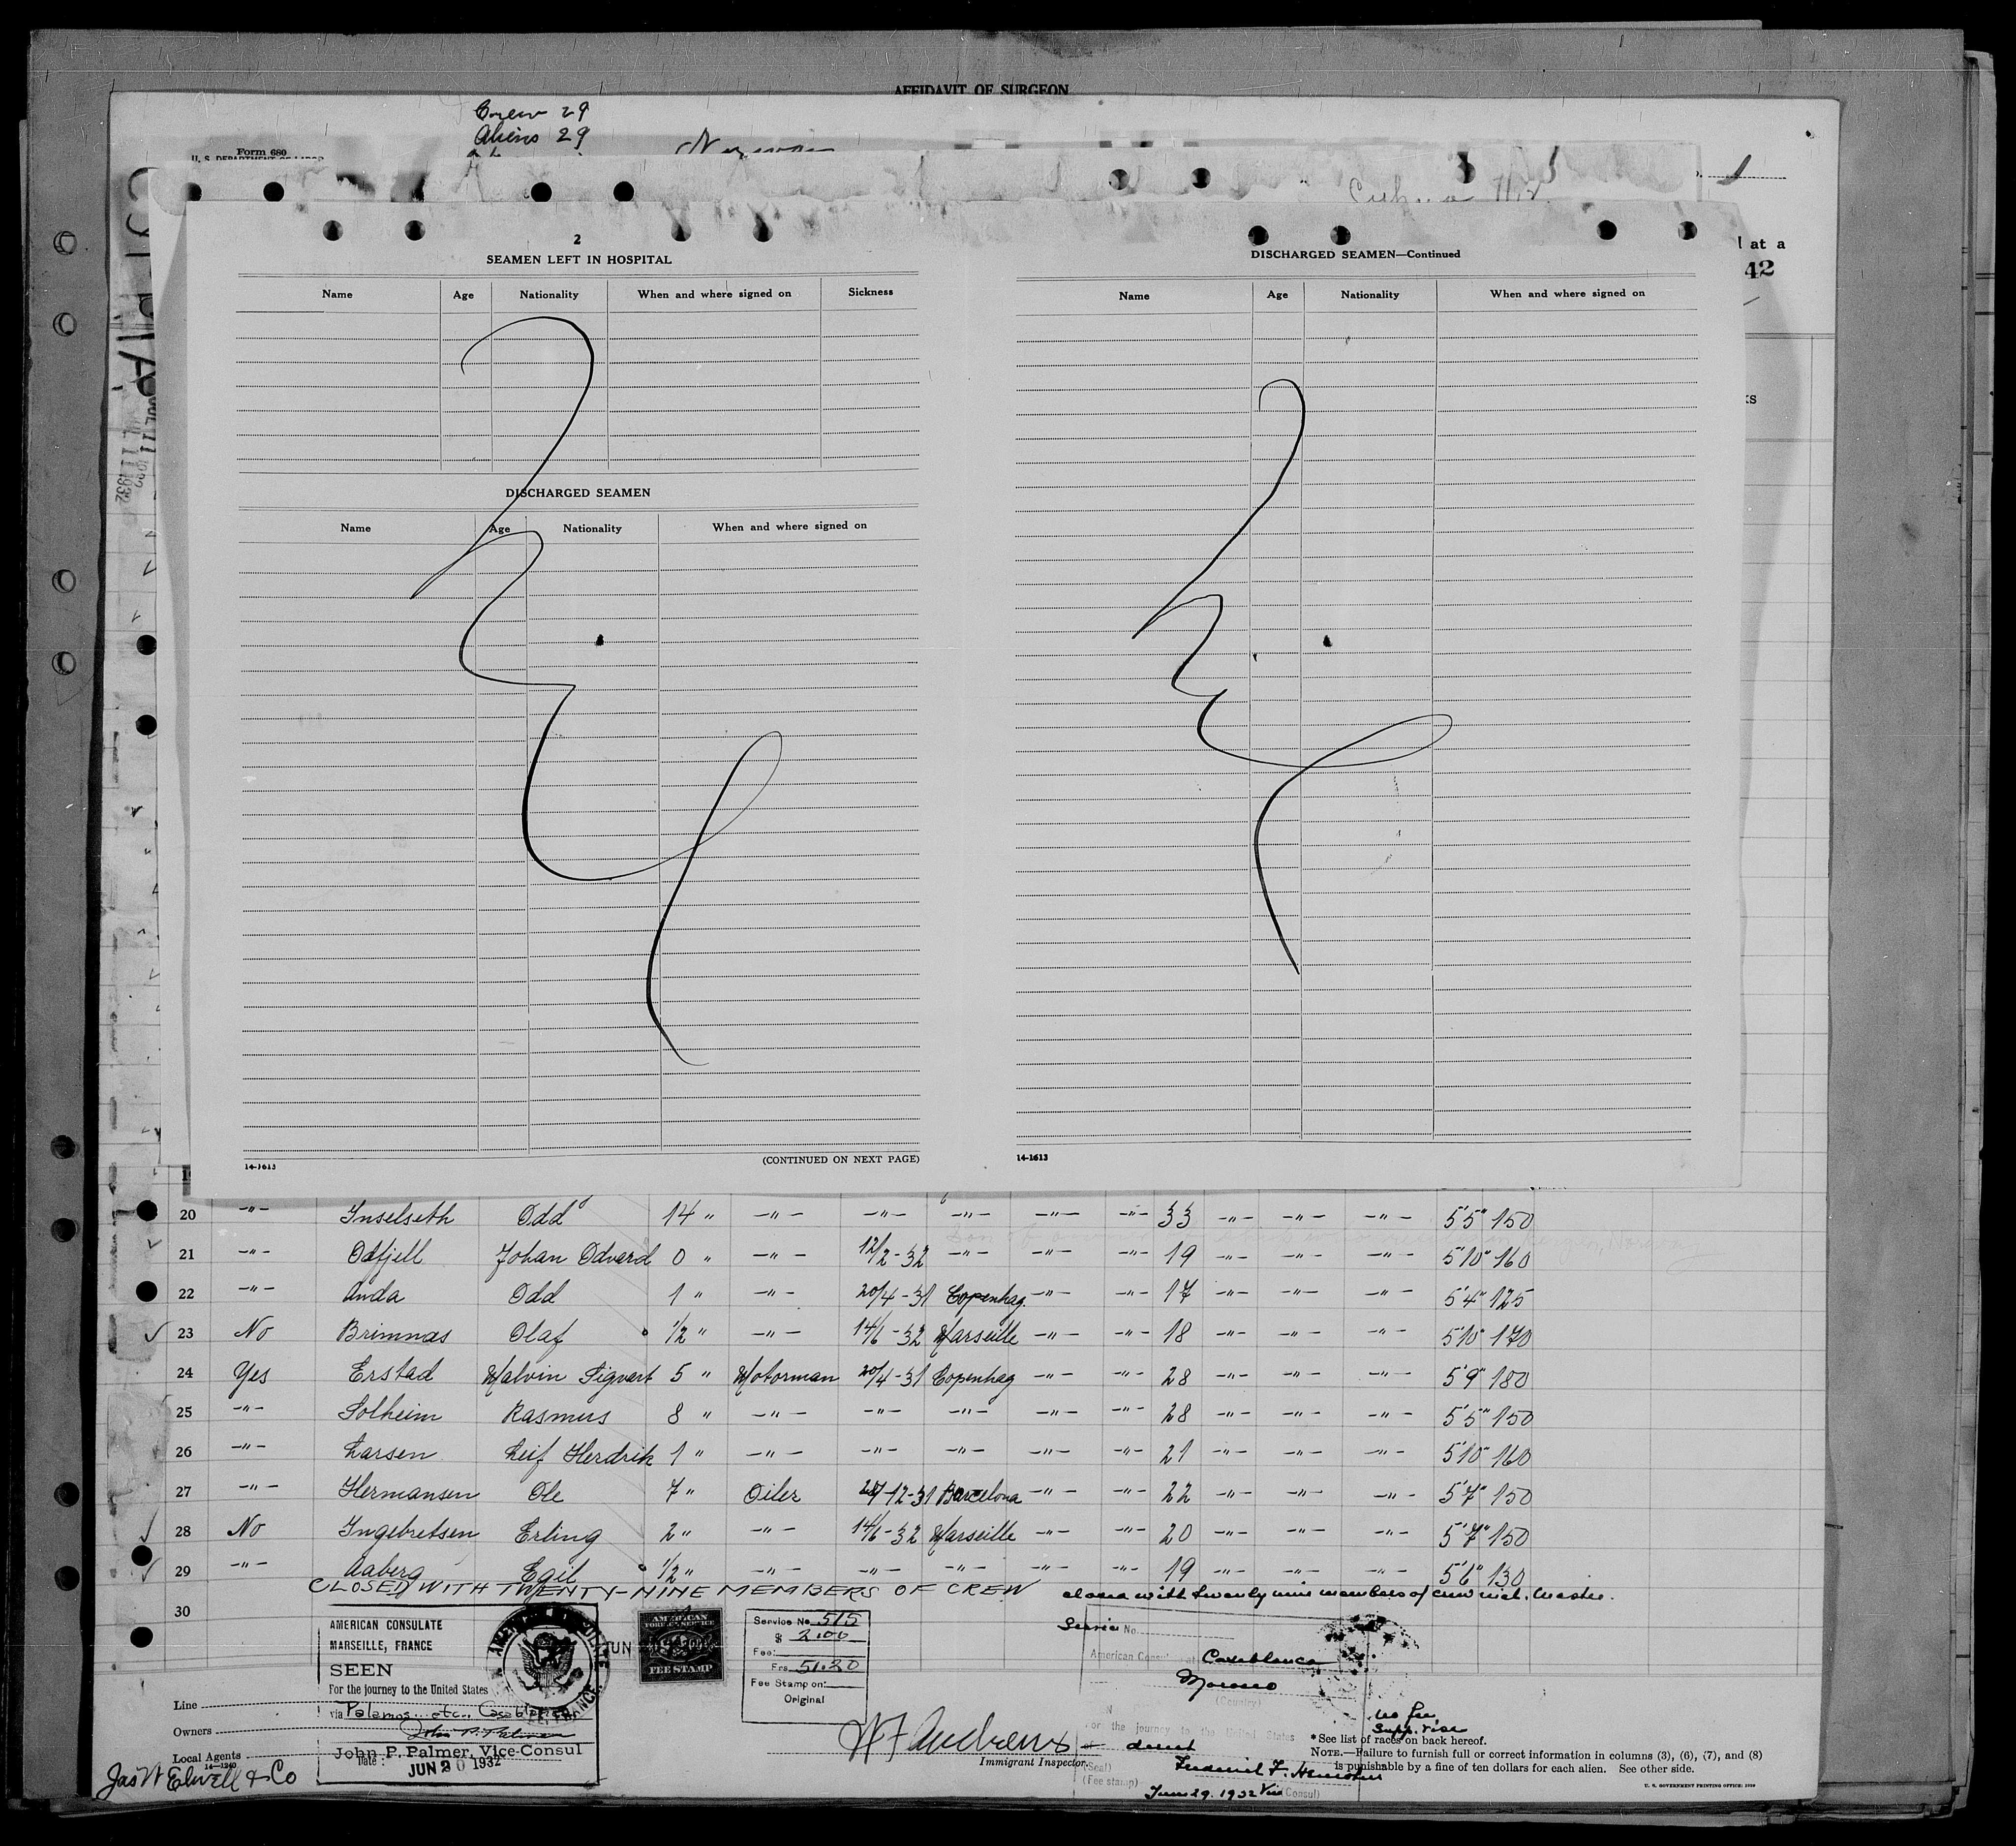 AFFIDAVIT OF SURGEON
Crew 29
Aliens 29
Form 680
U. S. DEPARTMENT OF LABOR
l at a
42
ks
2
SEAMEN LEFT IN HOSPITAL
Name Age Nationality When and where signed on Sickness
DISCHARGED SEAMEN
Name Age Nationality When and where signed on
14-1613 (CONTINUED ON NEXT PAGE)
DISCHARGED SEAMEN—Continued
Name Age Nationality When and where signed on
14-1613
1932
20 -"- Inselseth Odd 14 " -"- -"- -"- -"- -"- 33 -"- -"- -"- 5'5" 150
21 -"- Odfjell Johan Odvard 0 " -"- 12/2-32 -"- -"- -"- 19 -"- -"- -"- 5'10" 160
22 -"- Anda Odd 1 " -"- 20/4-31 Copenhag. -"- -"- 17 -"- -"- -"- 5'4" 125
23 No Brimnæs Olaf 1/2 " -"- 14/6-32 Marseille -"- -"- 18 -"- -"- -"- 5'10" 170
24 Yes Erstad Malvin Sigvart 5 " Motorman 20/4-31 Copenhag -"- -"- 28 -"- -"- -"- 5'9" 180
25 -"- Solheim Rasmus 8 " -"- -"- -"- -"- -"- 28 -"- -"- -"- 5'5" 150
26 -"- Larsen Leif Herdrik 1 " -"- -"- -"- -"- -"- 21 -"- -"- -"- 5'10" 160
27 -"- Hermansen Ole 7 " Oiler -12-31 Barcelona -"- -"- 22 -"- -"- -"- 5'7" 150
28 No Ingebretsen Erling 2 " -"- 14/6-32 Marseille -"- -"- 20 -"- -"- -"- 5'7" 150
29 -"- Aaberg Egil 1/2 " -"- -"- -"- -"- -"- 19 -"- -"- -"- 5'6" 130
CLOSED WITH TWENTY-NINE MEMBERS OF CREW closed with twenty nine members of crew incl. Master.
30
AMERICAN CONSULATE
MARSEILLE, FRANCE
SEEN
For the journey to the United States
via Palamos etc., Casablanca
John P. Palmer
John P. Palmer, Vice-Consul
Date: JUN 20 1932
JUN
AMERICAN
FOREIGN SERVICE
FEE STAMP
Service No. 515
$ 2.00
Fee:
Frs. 51.20
Fee Stamp on:
Original
Service No.
American Consul at Casablanca
Morocco
(Country)
For the journey to the United States
direct
(Seal)
(Fee stamp)
June 29. 1932 Vice Consul)
No fee
Supp. visa
Line
Owners
Local Agents
14-1240
Jas W Elwell & Co
W F Andrews
Immigrant Inspector.
*See list of races on back hereof.
NOTE.—Failure to furnish full or correct information in columns (3), (6), (7), and (8)
is punishable by a fine of ten dollars for each alien. See other side.
U. S. GOVERNMENT PRINTING OFFICE: 1929